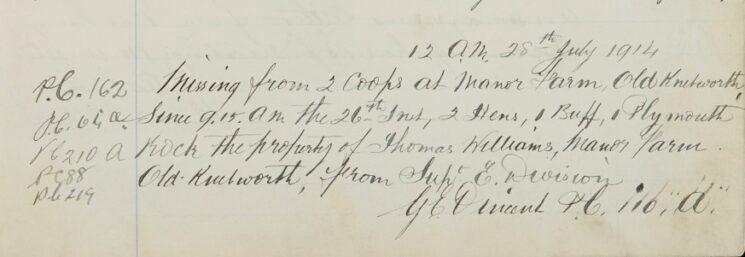 12 A.M. 28th July 1914
P.C. 162 Missing from 2 Coops at Manor Farm, Old Knebworth,
P.C. Since 9.15. am the 26th Inst, 2 Hens, 1 Buff, 1 Plymouth
P.C. 210 A Rock the property of Thomas Williams, Manor Farm.
P.C. 88 Old Knebworth, from Supt. E. Division
P.C. 219 Vincent P.C. 116, "A".